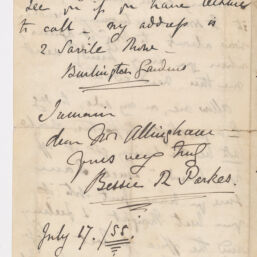 see you if you have leisure
to call – my address is
2 Savile Row
Burlington Gardens
I remain
dear Mr Allingham –
Yours very truly
Bessie R Parkes.
July 17. /55.